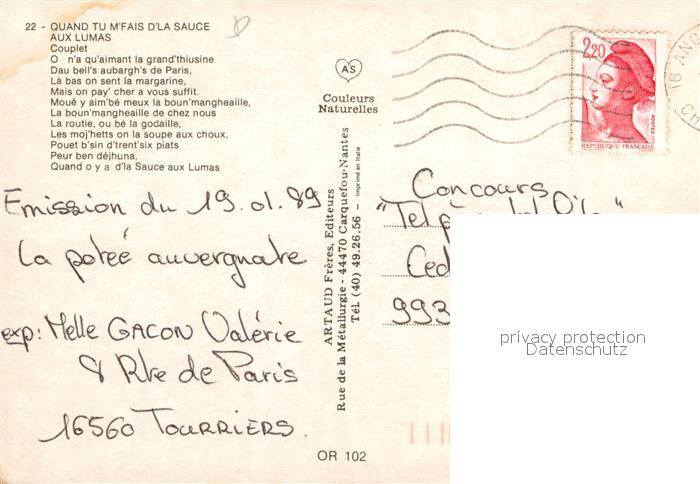 22 - QUAND TU M'FAIS D'LA SAUCE
AUX LUMAS
Couplet
O n'a qu'aimant la grand'thiusine
Dau bell's aubargh's de Paris,
Là bas on sent la margarine,
Mais on pay' cher a vous suffit.
Moué y aim'bé meux la boun'mangheaille,
La boun'mangheaille de chez nous
La routie, ou bé la godaille,
Les moj'hetts on la soupe aux choux,
Pouet b'sin d'trent'six piats
Peur ben déjhuna,
Quand o y a d'la Sauce aux Lumas
Emission du 19.01.89
La poteé auvergnate
exp: Melle GACON Valérie
8 Rte de Paris
16560 TOURRIERS.
AS
Couleurs
Naturelles
ARTAUD Frères, Editeurs
Rue de la Métallurgie - 44470 Carquefou-Nantes
Tél (40) 49.26.56 - Imprimé en Italie
OR 102
2,20
POSTES
REPUBLIQUE FRANÇAISE
16 ANG
CH
Concours
"Tel père
Ced
993
privacy protection
Datenschutz